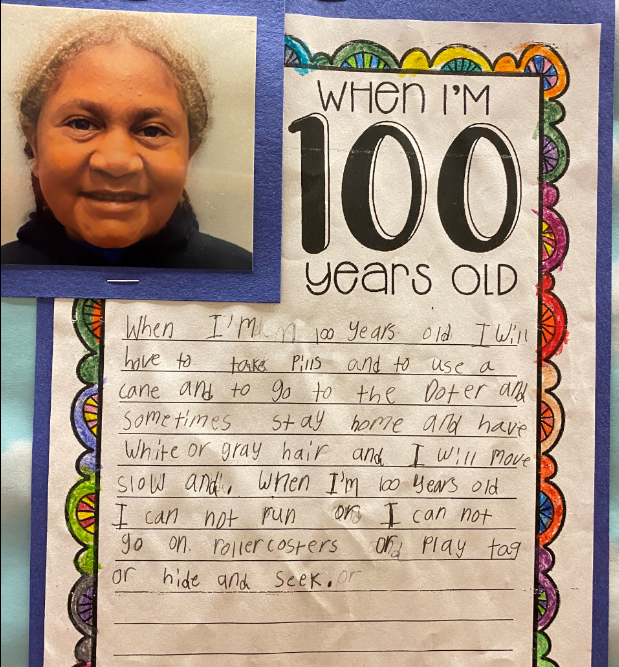 WHEN I'M
100
YEARS OLD
When I'M 100 years old I Will
have to take Pills and to use a
cane and to go to the Doter and
sometimes stay home and have
White or gray hair and I will move
slow and. When I'm 100 years old
I can not run or I can not
go on rollercosters or Play tag
or hide and seek.